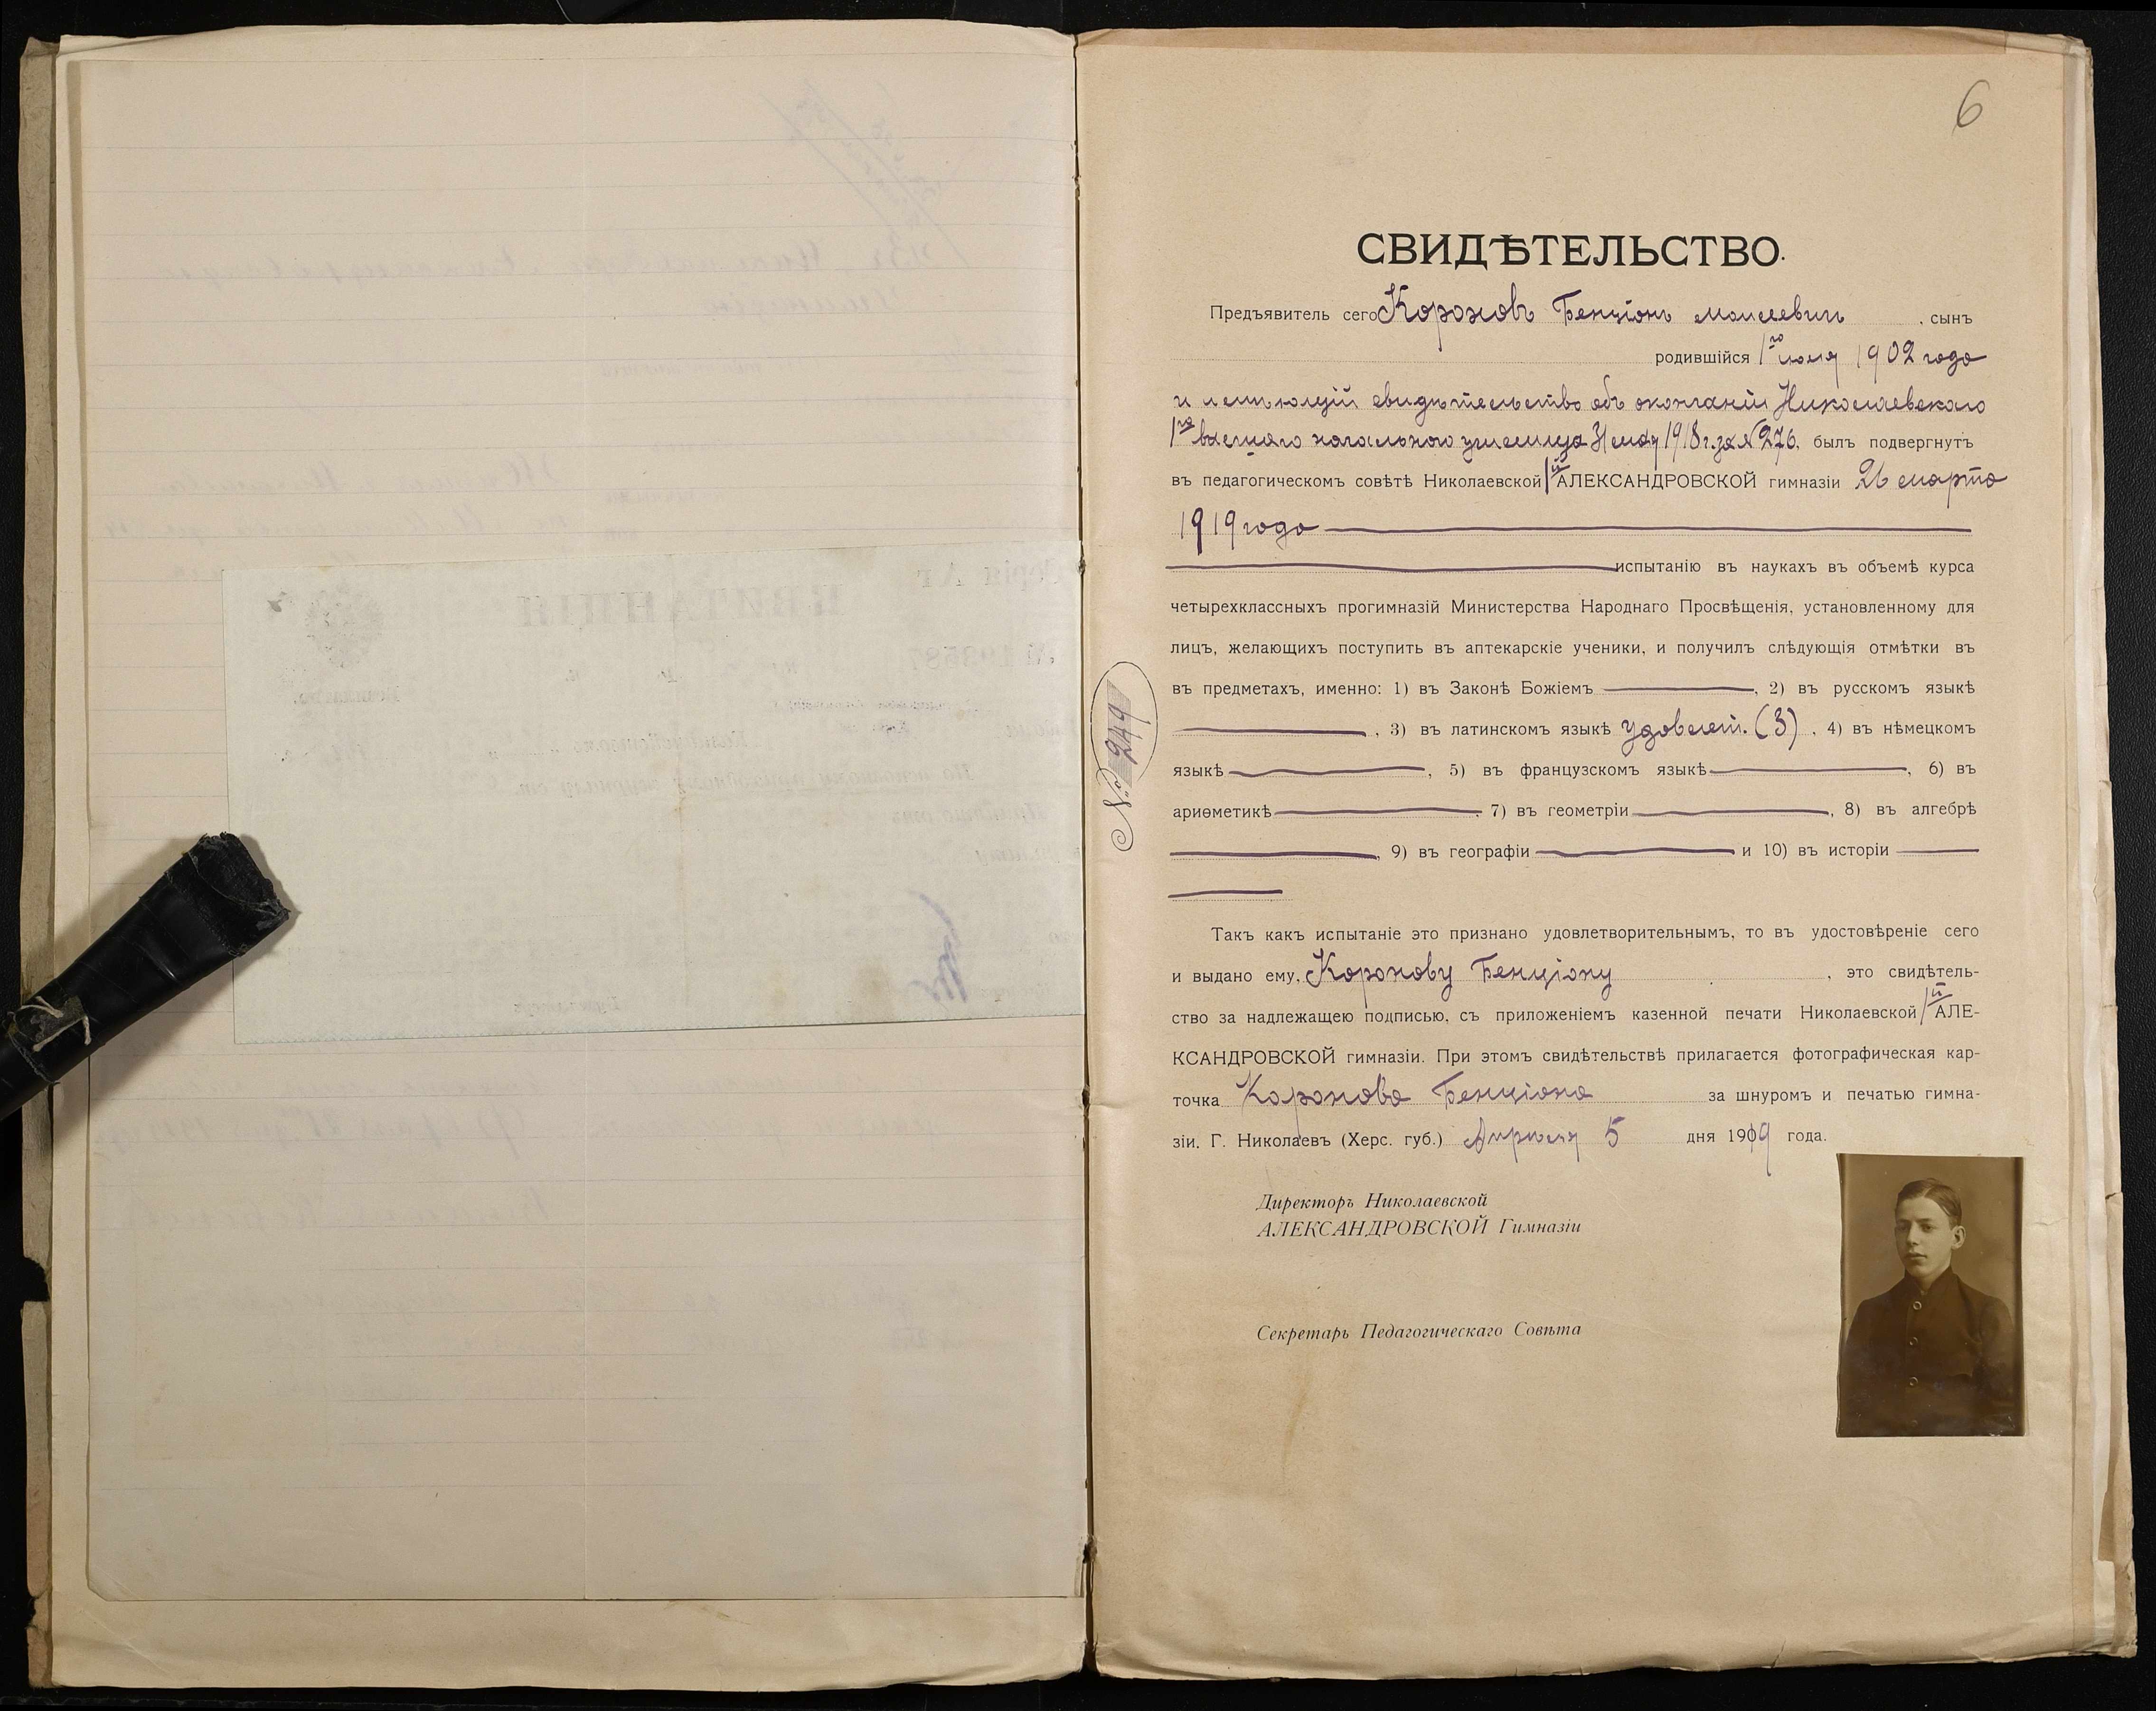 6
СВИДѢТЕЛЬСТВО.
Предъявитель сего Короновъ Бенціонъ Моисеевич, сынъ
родившійся 1го 1902 года
и имеющій свидѣтельство объ окончаніи Николаевского
1го высшаго начальнаго училища 31 мая 1918 г. за № 276, былъ подвергнутъ
въ педагогическомъ совѣтѣ Николаевской 1й АЛЕКСАНДРОВСКОЙ гимназіи 26 марта
1919 года
испытанію въ наукахъ въ объемѣ курса
четырехклассныхъ прогимназій Министерства Народнаго Просвѣщенія, установленному для
лицъ, желающихъ поступить въ аптекарскіе ученики, и получилъ слѣдующія отмѣтки въ
въ предметахъ, именно: 1) въ Законѣ Божіемъ , 2) въ русскомъ языкѣ
, 3) въ латинскомъ языкѣ удовлет. (3) , 4) въ нѣмецкомъ
языкѣ , 5) въ французскомъ языкѣ , 6) въ
ариѳметикѣ , 7) въ геометріи , 8) въ алгебрѣ
, 9) въ географіи и 10) въ исторіи
№ 249
Такъ какъ испытаніе это признано удовлетворительнымъ, то въ удостовѣреніе сего
и выдано ему, Коронову Бенціону , это свидѣтель-
ство за надлежащею подписью, съ приложеніемъ казенной печати Николаевской 1й АЛЕ-
КСАНДРОВСКОЙ гимназіи. При этомъ свидѣтельствѣ прилагается фотографическая кар-
точка Коронова Бенціона за шнуромъ и печатью гимна-
зіи. Г. Николаевъ (Херс. губ.) Апрѣля 5 дня 1919 года.
Директоръ Николаевской
АЛЕКСАНДРОВСКОЙ Гимназіи
Секретарь Педагогическаго Совѣта